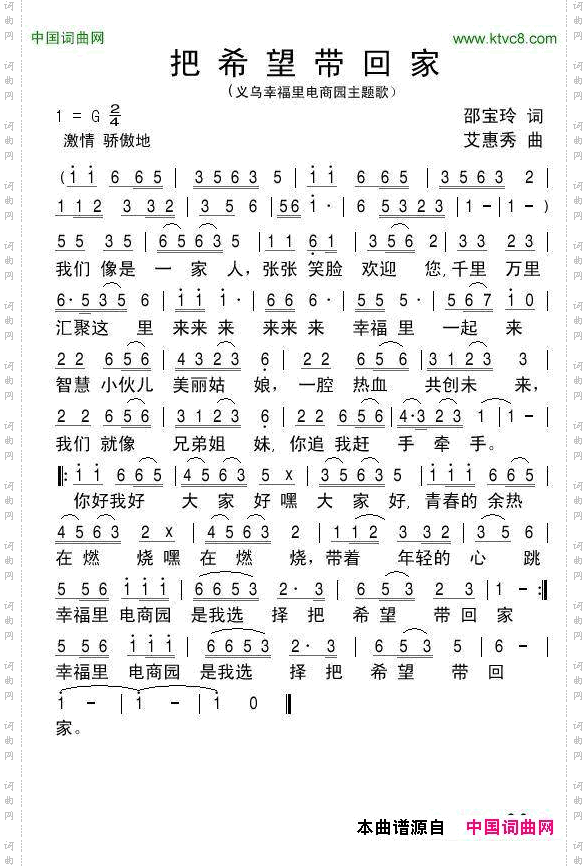 中国词曲网 www.ktvc8.com
把希望带回家
(义乌幸福里电商园主题歌)
1 = G 2/4 邵宝玲 词
激情 骄傲地 艾惠秀 曲
( 1 1 6 6 5 | 3 5 6 3 5 | 1 1 6 6 5 | 3 5 6 3 2 |
1 1 2 3 2 3 | 3 5 6 | 5 6 1 · | 6 5 3 2 3 | 1 - | 1 - )
5 5 3 5 | 6 5 6 3 5 | 1 1 6 1 | 3 5 6 2 | 3 3 2 3 |
我们 像是 一 家 人，张张 笑脸 欢迎 您,千里 万里
6 · 5 3 5 6 | 1 1 1 · | 6 6 6 · | 5 3 5 · | 5 6 7 | 1 0
汇聚这 里 来来 来 来来 来 幸福 里 一起 来
2 2 6 5 6 | 4 3 2 3 6 | 2 2 3 5 6 5 | 6 6 5 6 | 5 - |
智慧 小伙儿 美丽姑 娘，一腔 热血 共创未 来，
2 2 6 5 6 | 4 3 2 3 6 | 2 2 6 5 6 | 4 · 3 2 3 1 | 1 - |
我们 就像 兄弟姐 妹，你追 我赶 手 牵 手。
1 1 6 6 5 | 4 5 6 3 5 x | 3 5 6 3 5 | 1 1 1 6 6 5 |
你好我好 大 家 好 嘿 大 家 好，青春的 余热
4 5 6 3 2 x | 4 5 6 3 2 · | 1 1 2 | 3 3 2 | 3 5 6 |
在 燃 烧嘿 在 燃 烧，带着 年轻的 心 跳
5 5 6 1 1 1 | 6 6 5 3 | 2 · 3 | 6 5 3 | 2 3 | 1 - :
幸福里 电商园 是我选 择 把 希 望 带 回 家
5 5 6 1 1 1 | 6 6 5 3 | 2 · 3 | 6 5 3 | 2 3 |
幸福里 电商园 是我选 择 把 希 望 带 回
1 - | 1 - | 1 0
家。
本曲谱源自 中国词曲网